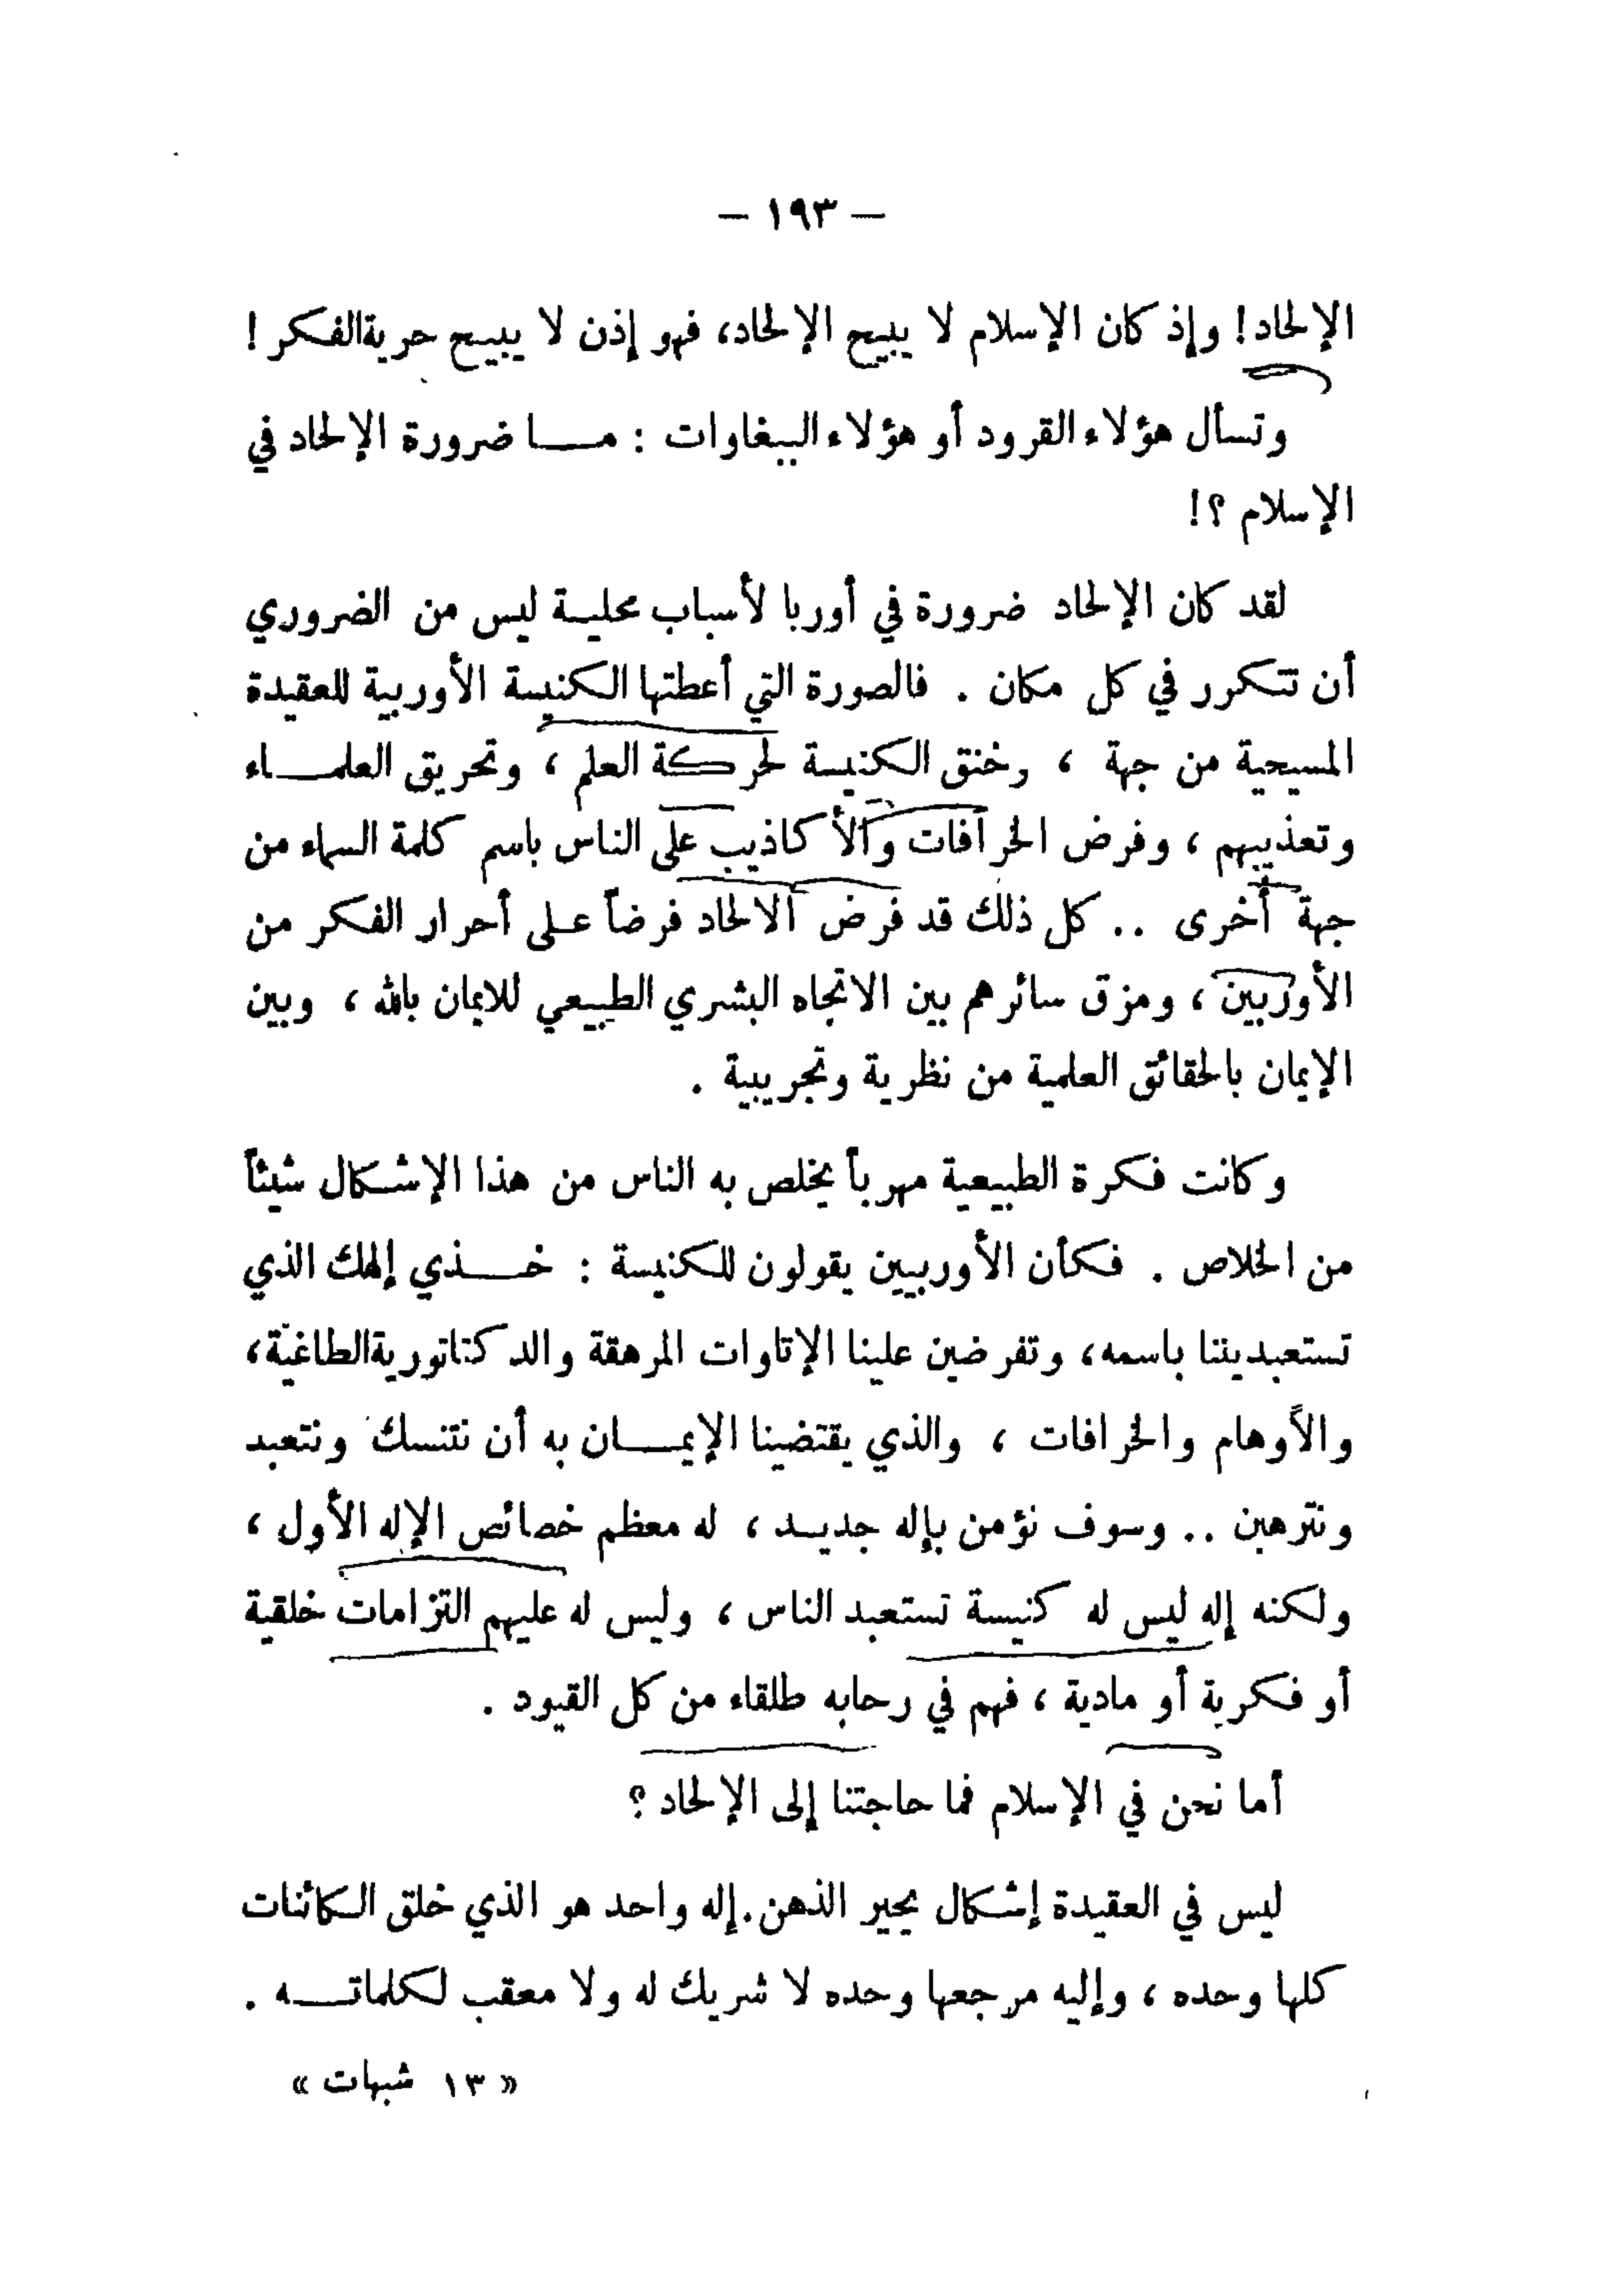 — ١٩٣ —
الإلحاد! وإذ كان الإسلام لا يبيح الإلحاد، فهو إذن لا يبيح حرية الفكر !
وتسأل هؤلاء القرود أو هؤلاء الببغاوات : ما ضرورة الإلحاد في
الإسلام ؟!
لقد كان الإلحاد ضرورة في أوربا لأسباب محلية ليس من الضروري
أن تتكرر في كل مكان . فالصورة التي أعطتها الكنيسة الأوربية للعقيدة
المسيحية من جهة ، وخنق الكنيسة لحركة العلم ، وتحريق العلماء
وتعذيبهم ، وفرض الخرافات والأكاذيب على الناس باسم كلمة السماء من
جهة أخرى .. كل ذلك قد فرض الالحاد فرضاً على أحرار الفكر من
الأوربين ، ومزق سائرهم بين الاتجاه البشري الطبيعي للايمان بالله ، وبين
الإيمان بالحقائق العلمية من نظرية وتجريبية .
وكانت فكرة الطبيعية مهرباً يخلص به الناس من هذا الإشكال شيئاً
من الخلاص . فكأن الأوربيين يقولون للكنيسة : خذي إلهك الذي
تستعبديننا باسمه، وتفرضين علينا الإتاوات المرهقة والدكتاتورية الطاغية،
والأوهام والخرافات ، والذي يقتضينا الإيمان به أن نتنسك ونتعبد
ونترهبن .. وسوف نؤمن بإله جديد ، له معظم خصائص الإله الأول ،
ولكنه إله ليس له كنيسة تستعبد الناس ، وليس له عليهم التزامات خلقية
أو فكرية أو مادية ، فهم في رحابه طلقاء من كل القيود .
أما نحن في الإسلام فما حاجتنا إلى الإلحاد ؟
ليس في العقيدة إشكال يحير الذهن. إله واحد هو الذي خلق الكائنات
كلها وحده ، وإليه مرجعها وحده لا شريك له ولا معقب لكلماته .
« ١٣ شبهات »